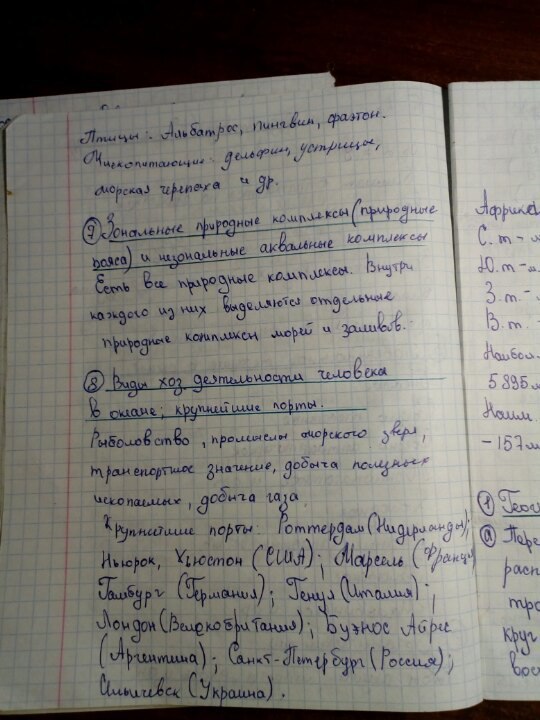 Птицы: Альбатрос, пингвин, фаэтон.
Мликопитающие: дельфин, устрицы,
морская черепаха и др.
7 Зональные природные комплексы (природные
пояса) и незональные аквальные комплексы
Есть все природные комплексы. Внутри
каждого из них выделяются отдельные
природные комплексы морей и заливов.
8 Виды хоз деятельности человека
в океане; крупнейшие порты.
Рыболовство, промыслы морского зверя,
транспортное значение, добыча полезных
ископаемых, добыча газа
Крупнейшие порты: Роттердам (Нидерланды);
Ньюрок, Хьюстон (США); Марсель (Франция
Гамбург (Германия); Генуя (Италия);
Лондон (Велекобритания); Буэнос Айрес
(Аргентина); Санкт-Петербург (Россия);
Ильичевск (Украина).
Африке
С. т -
Ю. т -
З. т -
В. т -
Наибол.
5895 м
Наим.
-157 м
1 Геог
а Пере
расп
тро
круг
вос